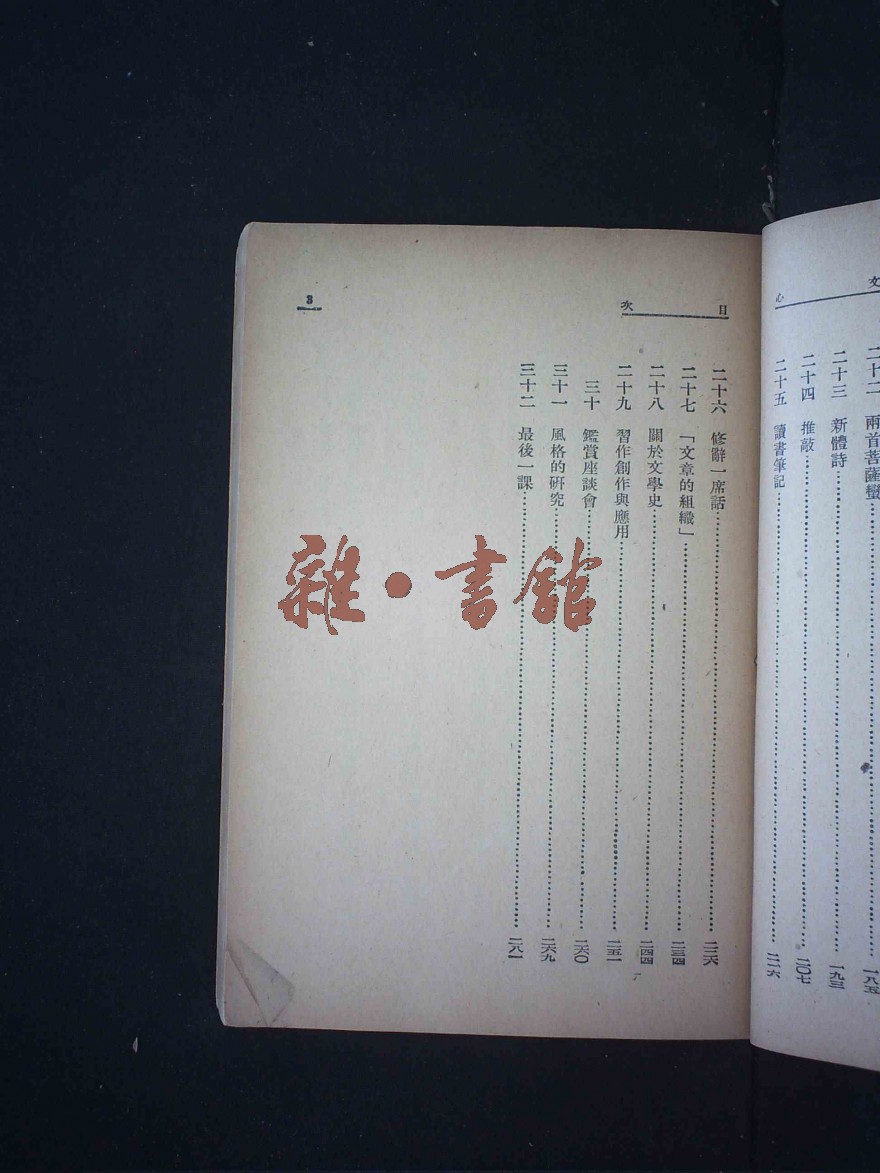 文心
二十二 兩首菩薩蠻 一八五
二十三 新體詩 一九三
二十四 推敲 二〇七
二十五 讀書筆記 二一六
目次
3
二十六 修辭一席話 二二六
二十七 「文章的組織」 二三四
二十八 關於文學史 二四四
二十九 習作創作與應用 二五一
三十 鑑賞座談會 二六〇
三十一 風格的研究 二六九
三十二 最後一課 二八一
雜·書館